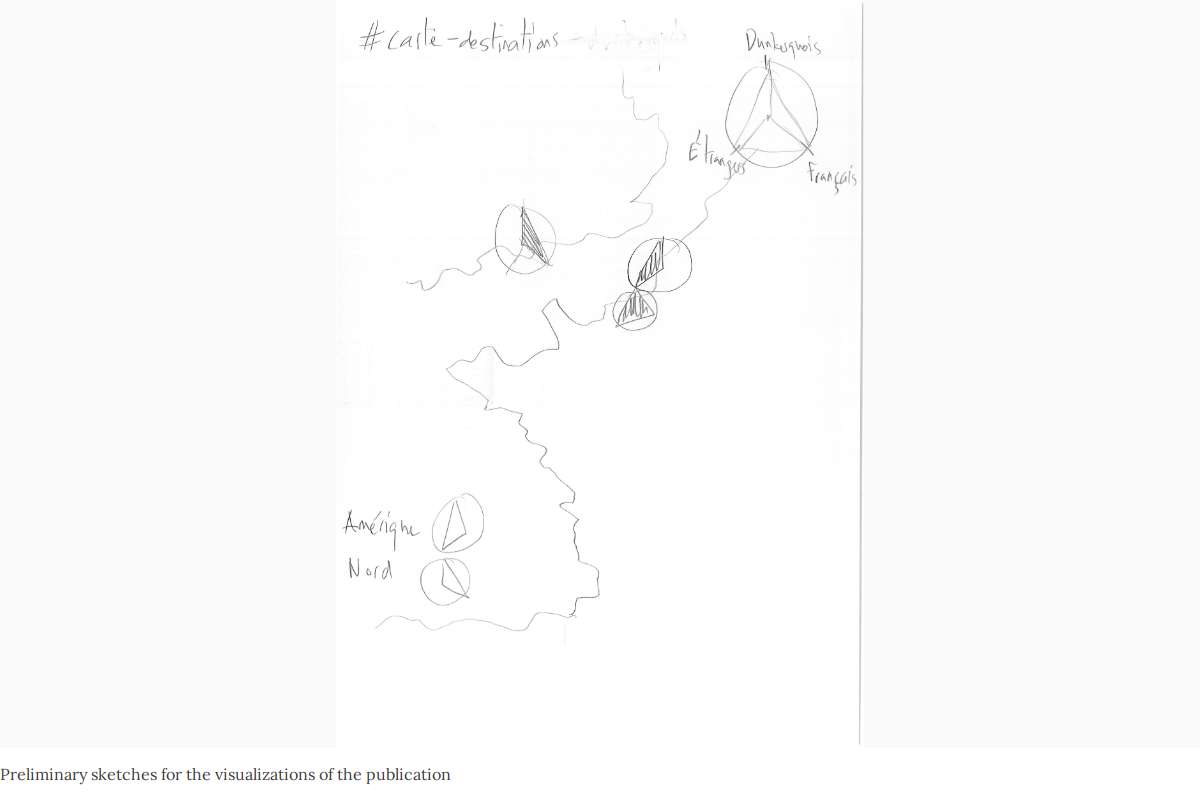 #carte-destinations
Dunkerquois
Étrangers
Français
Amérique
Nord
Preliminary sketches for the visualizations of the publication